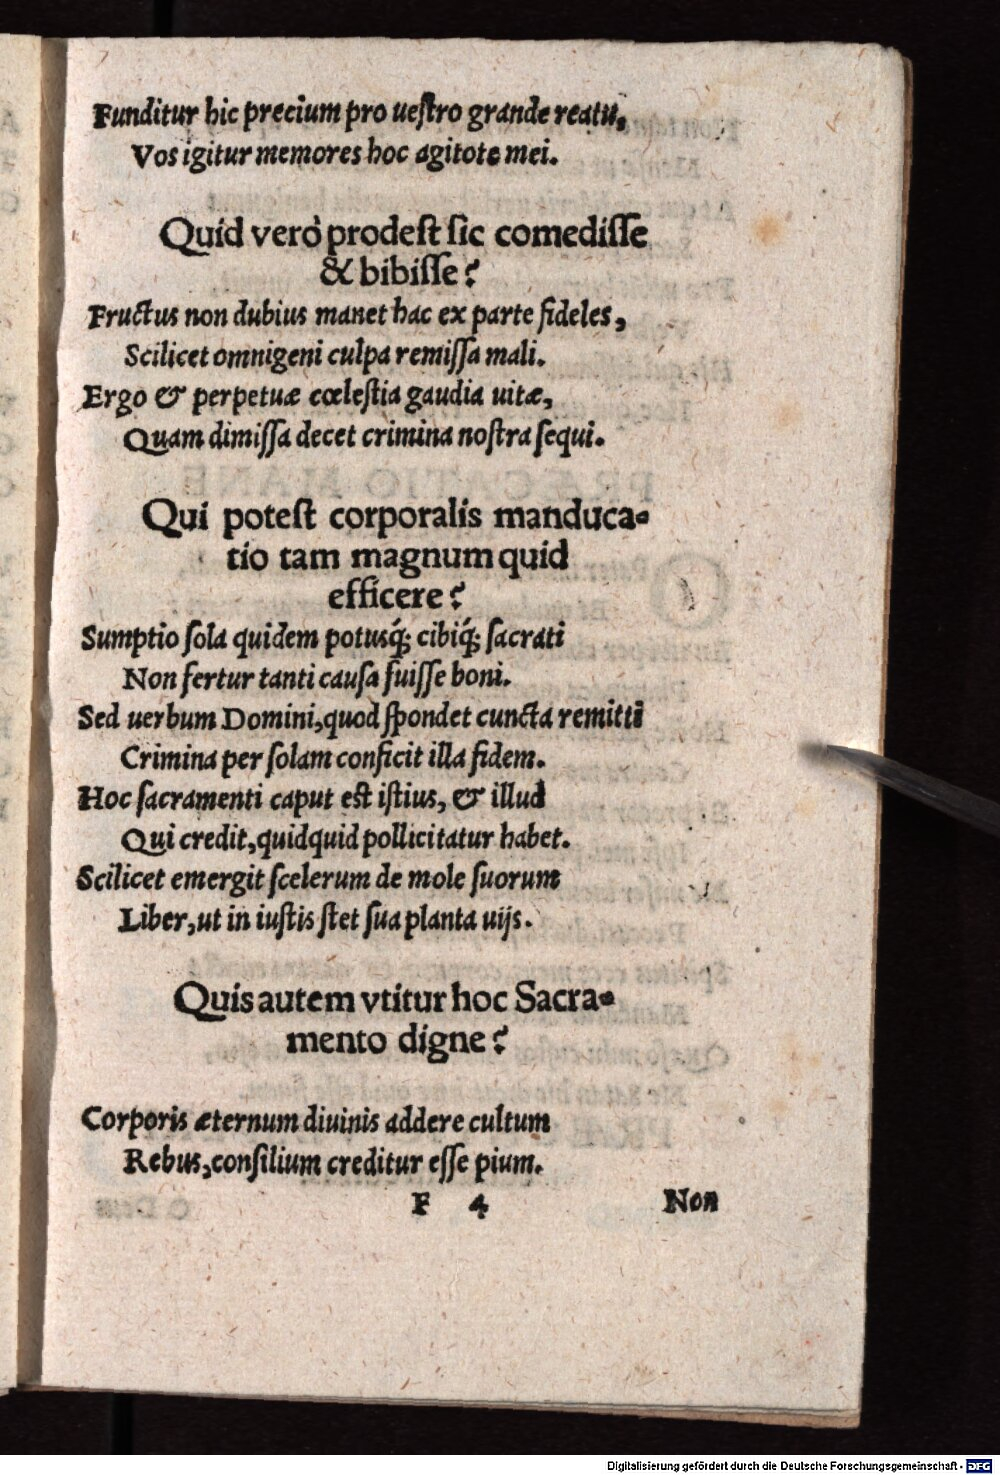 Funditur hic precium pro ueſtro grande reatu,
Vos igitur memores hoc agitote mei.
Quid verò prodeſt ſic comediſſe
& bibiſſe?
Fructus non dubius manet hac ex parte fideles,
Scilicet omnigeni culpa remiſſa mali.
Ergo & perpetuæ cœleſtia gaudia uitæ,
Quam dimiſſa decet crimina noſtra ſequi.
Qui poteſt corporalis manduca-
tio tam magnum quid
efficere?
Sumptio ſola quidem potusq́; cibiq́; ſacrati
Non fertur tanti cauſa fuiſſe boni.
Sed uerbum Domini, quod ſpondet cuncta remitti
Crimina per ſolam conficit illa fidem.
Hoc ſacramenti caput eſt iſtius, & illud
Qui credit, quidquid pollicitatur habet.
Scilicet emergit ſcelerum de mole ſuorum
Liber, ut in iuſtis ſtet ſua planta uijs.
Quis autem vtitur hoc Sacra-
mento digne?
Corporis æternum diuinis addere cultum
Rebus, conſilium creditur eſſe pium.
F 4 Non
Digitalisierung gefördert durch die Deutsche Forschungsgemeinschaft - DFG